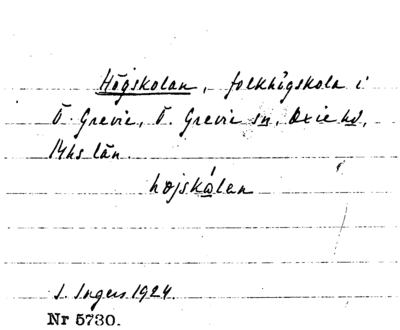 Högskolan, folkhögskola i
Ö. Grevie, Ö. Grevie sn, Oxie hd,
Mhs län.
højskålen
I. Ingers 1924.
Nr 5730.